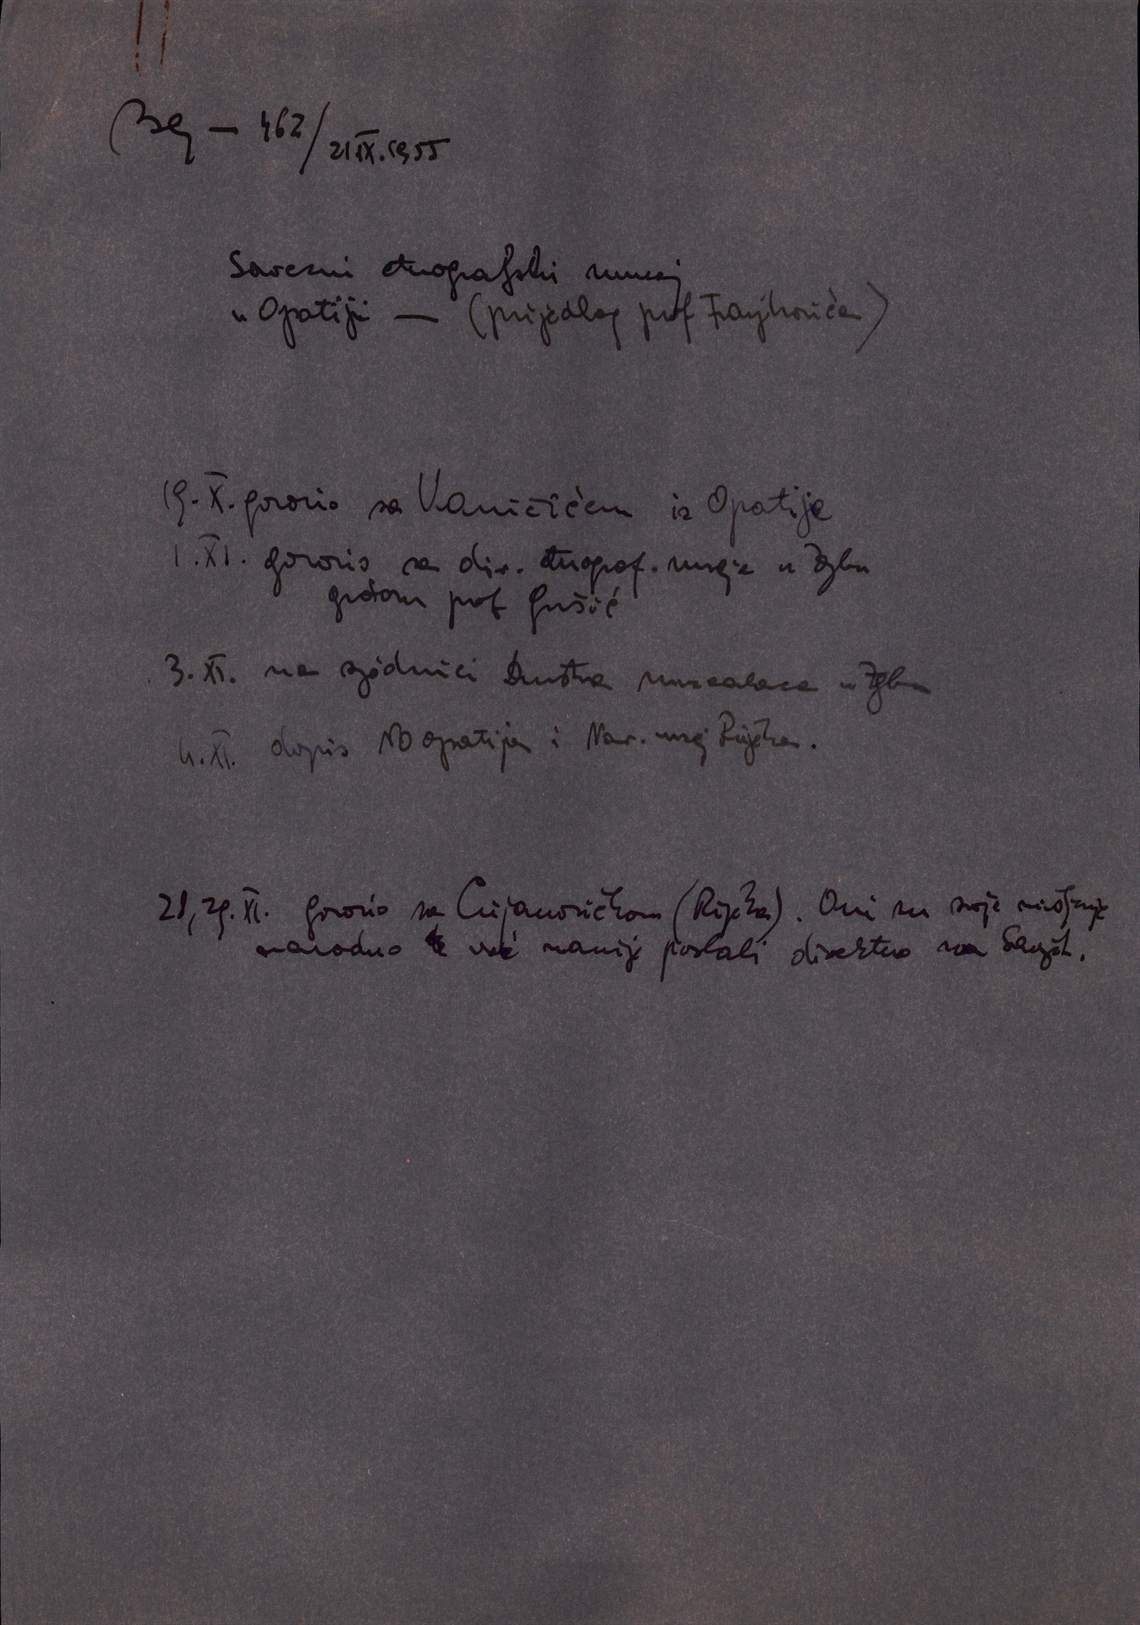 Bg — 462/21 IX. 1955
Savezni etnografski muzej
u Opatiji — (prijedlog prof
19. X. govorio sa Vaničićem iz Opatije
1. XI. govorio sa dir. etnograf. muzeja u Zgbu
gđom prof Gušić
3. XI. na sjednici Društva muzealaca u Zgbu
4. XI. dopis NO Opatija i Nar. muzej Rijeka.
28, 29. XI. govorio sa (Rijeka). Oni su svoje mišljenje
navodno već ranije poslali direktno na